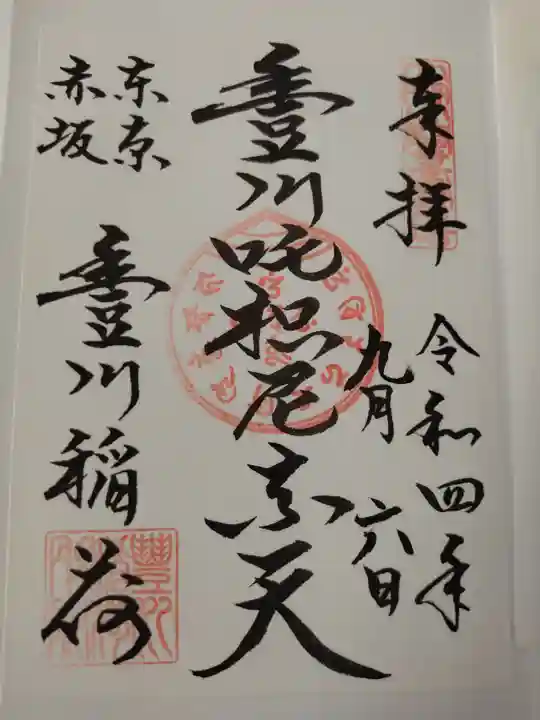 奉拝
令和四年
九月六日
豊川吒枳尼真天
東京
赤坂
豊川稲荷